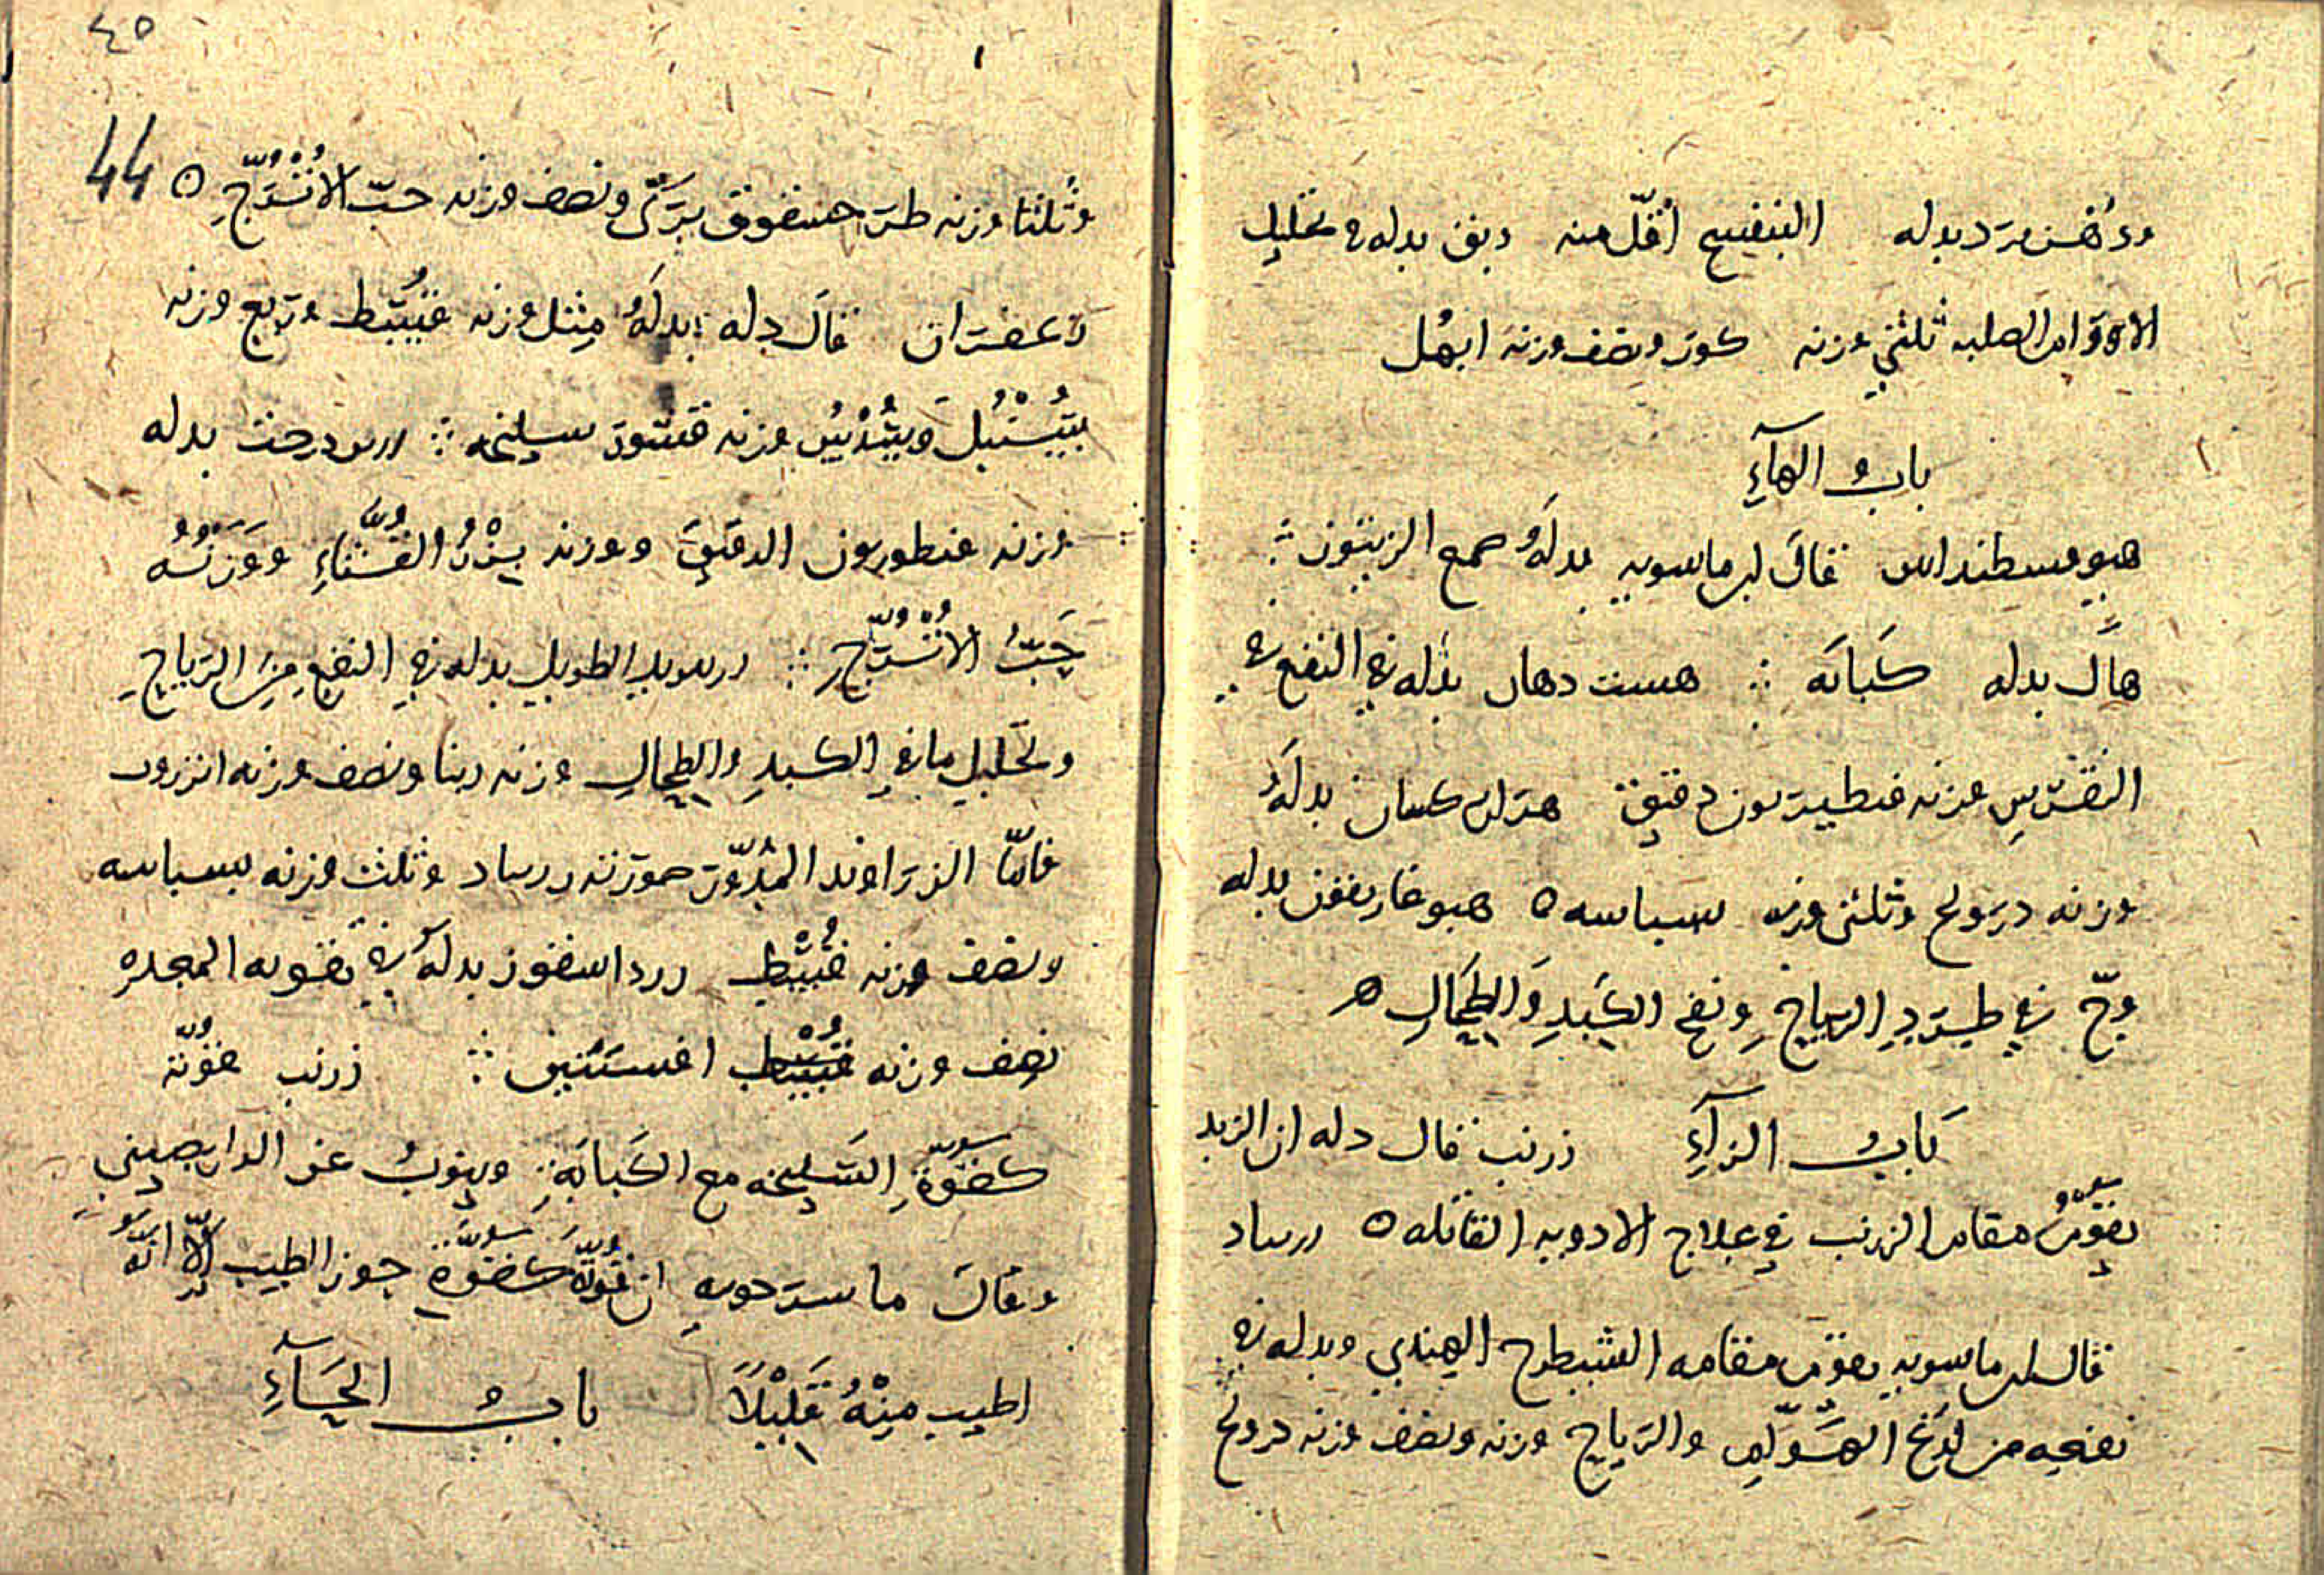 ودهن ورد بدله البنفسج اقل منه دبق بدله في تحليل
الاورام الصلبه ثلثي وزنه كور ونصف وزنه ابهل
باب الهآءِ
هيوفسطنداس قال ابن ماسويه بدلهُ صمع الزيتون
هال بدله كبابه ؞ هست دهان بدله في النفع في
النقرس وزنه قنطيريون دقيق هزار كسان بدلهُ
وزنه درونج وثلثي وزنه بسباسه ٥ هيوفاريقون بدله
وجّ في طرد الرياح ونفع الكبدِ والطحالِ ٥
باب الزآءِ زرنب قال دله ان الزبد
يقومُ مقام الزرنب في علاج الادويه القاتله ٥ زرنباد
قال ابن ماسويه يقوم مقامه الشيطرج الهندي وبدله في
نفعه من لدغ الهوام والرياح وزنه ونصف وزنه درونج
٤٥
44
وثلثا وزنه طرحشقوق برّى ونصف وزنه حبّ الاُتْرُجّ ٥
زعفران قال دله بدلهُ مِثل وزنه قُسْط وربع وزنه
سُنْبُل وسُدُس وزنه قشور سليخه ؞ بدله
وزنه قنطوريون الدقيق ووزنه بزْرُ القثّاءِ ووَزْنُهُ
حَبّ الاُتْرُجّ ؞ الطويل بدله في النفعِ مِنَ الرّياحِ
وتحليل ما في الكبدِ والطحالِ وزنه ونصف وزنه انزروت
فامّا الزراوند المُدوّر وزنه زرنباد وثلث وزنه بسباسه
ونصف وزنه قُسْط بدلهُ في تقويه المعده
نصف وزنه افسنتين ؞ زرنب قوّته
كقوّةِ السّليخه مع الكبابَةِ وينوبُ عن الدارصيني
وقال ماسرجويه ان قوّتهُ كقوّةِ جوز الطيب اِلّا انّهُ
اطيب مِنْهُ قَلِيْلاً باب الحَآءِ